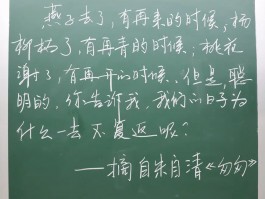 燕子去了,有再来的时候,杨
柳枯了,有再青的时候;桃花
谢了,有再开的时候.但是,聪
明的,你告诉我,我们的日子为
什么一去不复返呢?
——摘自朱自清《匆匆》